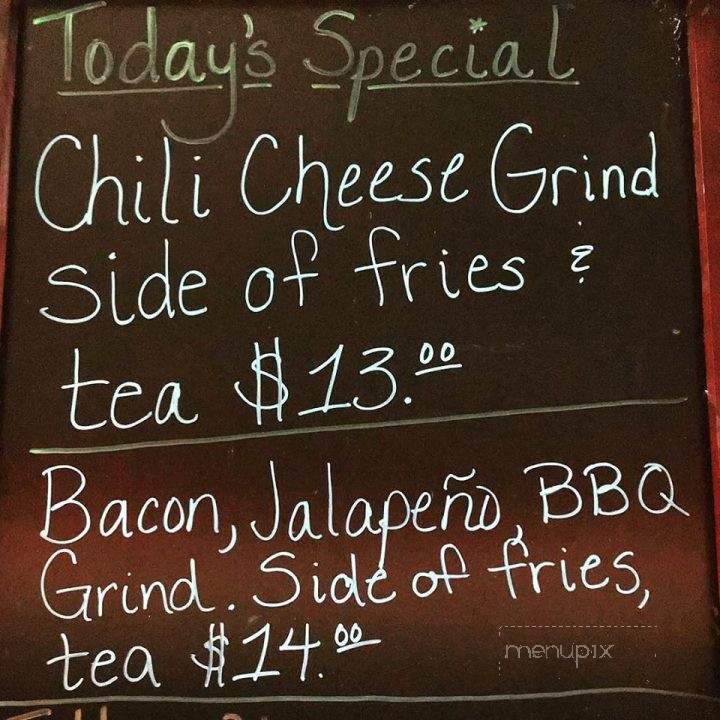 Today's Special
Chili Cheese Grind
side of fries &
tea $13.00
Bacon, Jalapeño, BBQ
Grind. Side of fries,
tea $14.00
menupix